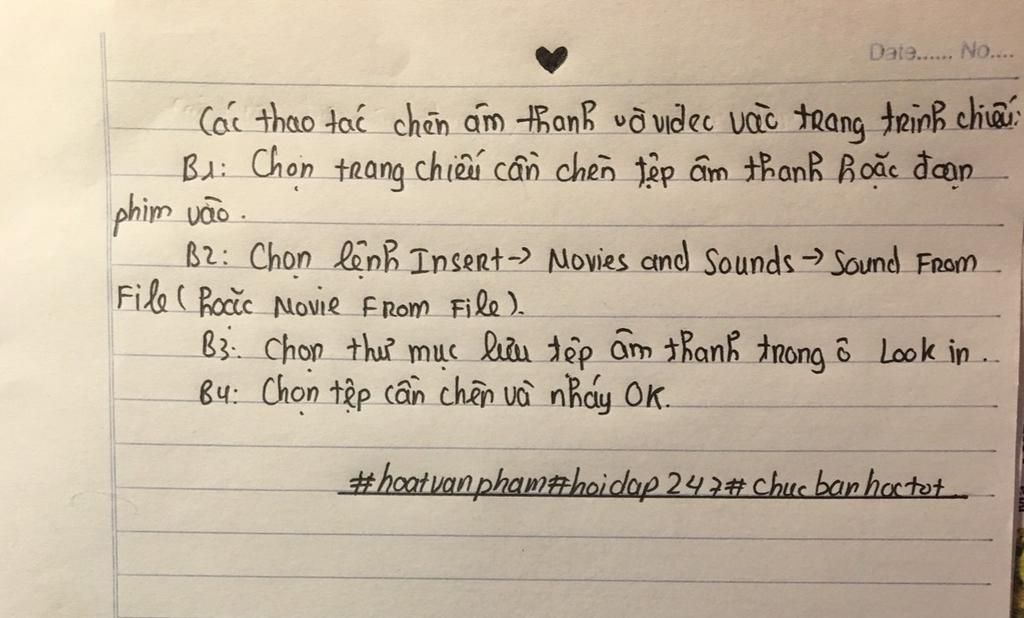 Date...... No....
Các thao tác chèn âm thanh và video vào trang trình chiếu:
B1: Chọn trang chiếu cần chèn tệp âm thanh hoặc đoạn
phim vào.
B2: Chọn lệnh Insert → Movies and Sounds → Sound From
File (hoặc Movie From File).
B3: Chọn thư mục lưu tệp âm thanh trong ô Look in.
B4: Chọn tệp cần chèn và nháy OK.
#hoatvanpham#hoidap247#chucbanhoctot